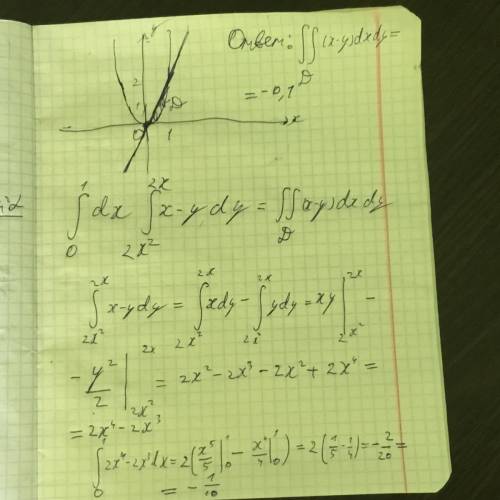 y
2
1
D
0 1 x
Ответ: ∬(x-y)dxdy=
D
= -0,1
∫₀¹ dx ∫_{2x²}^{2x} x-y dy = ∬_D (x-y) dx dy
∫_{2x²}^{2x} x-y dy = ∫_{2x²}^{2x} x dy - ∫_{2x²}^{2x} y dy = xy |_{2x²}^{2x} -
- y²/2 |_{2x²}^{2x} = 2x² - 2x³ - 2x² + 2x⁴ =
= 2x⁴ - 2x³
∫₀¹ 2x⁴ - 2x³ dx = 2(x⁵/5 |₀¹ - x⁴/4 |₀¹) = 2(1/5 - 1/4) = -2/20 =
= -1/10